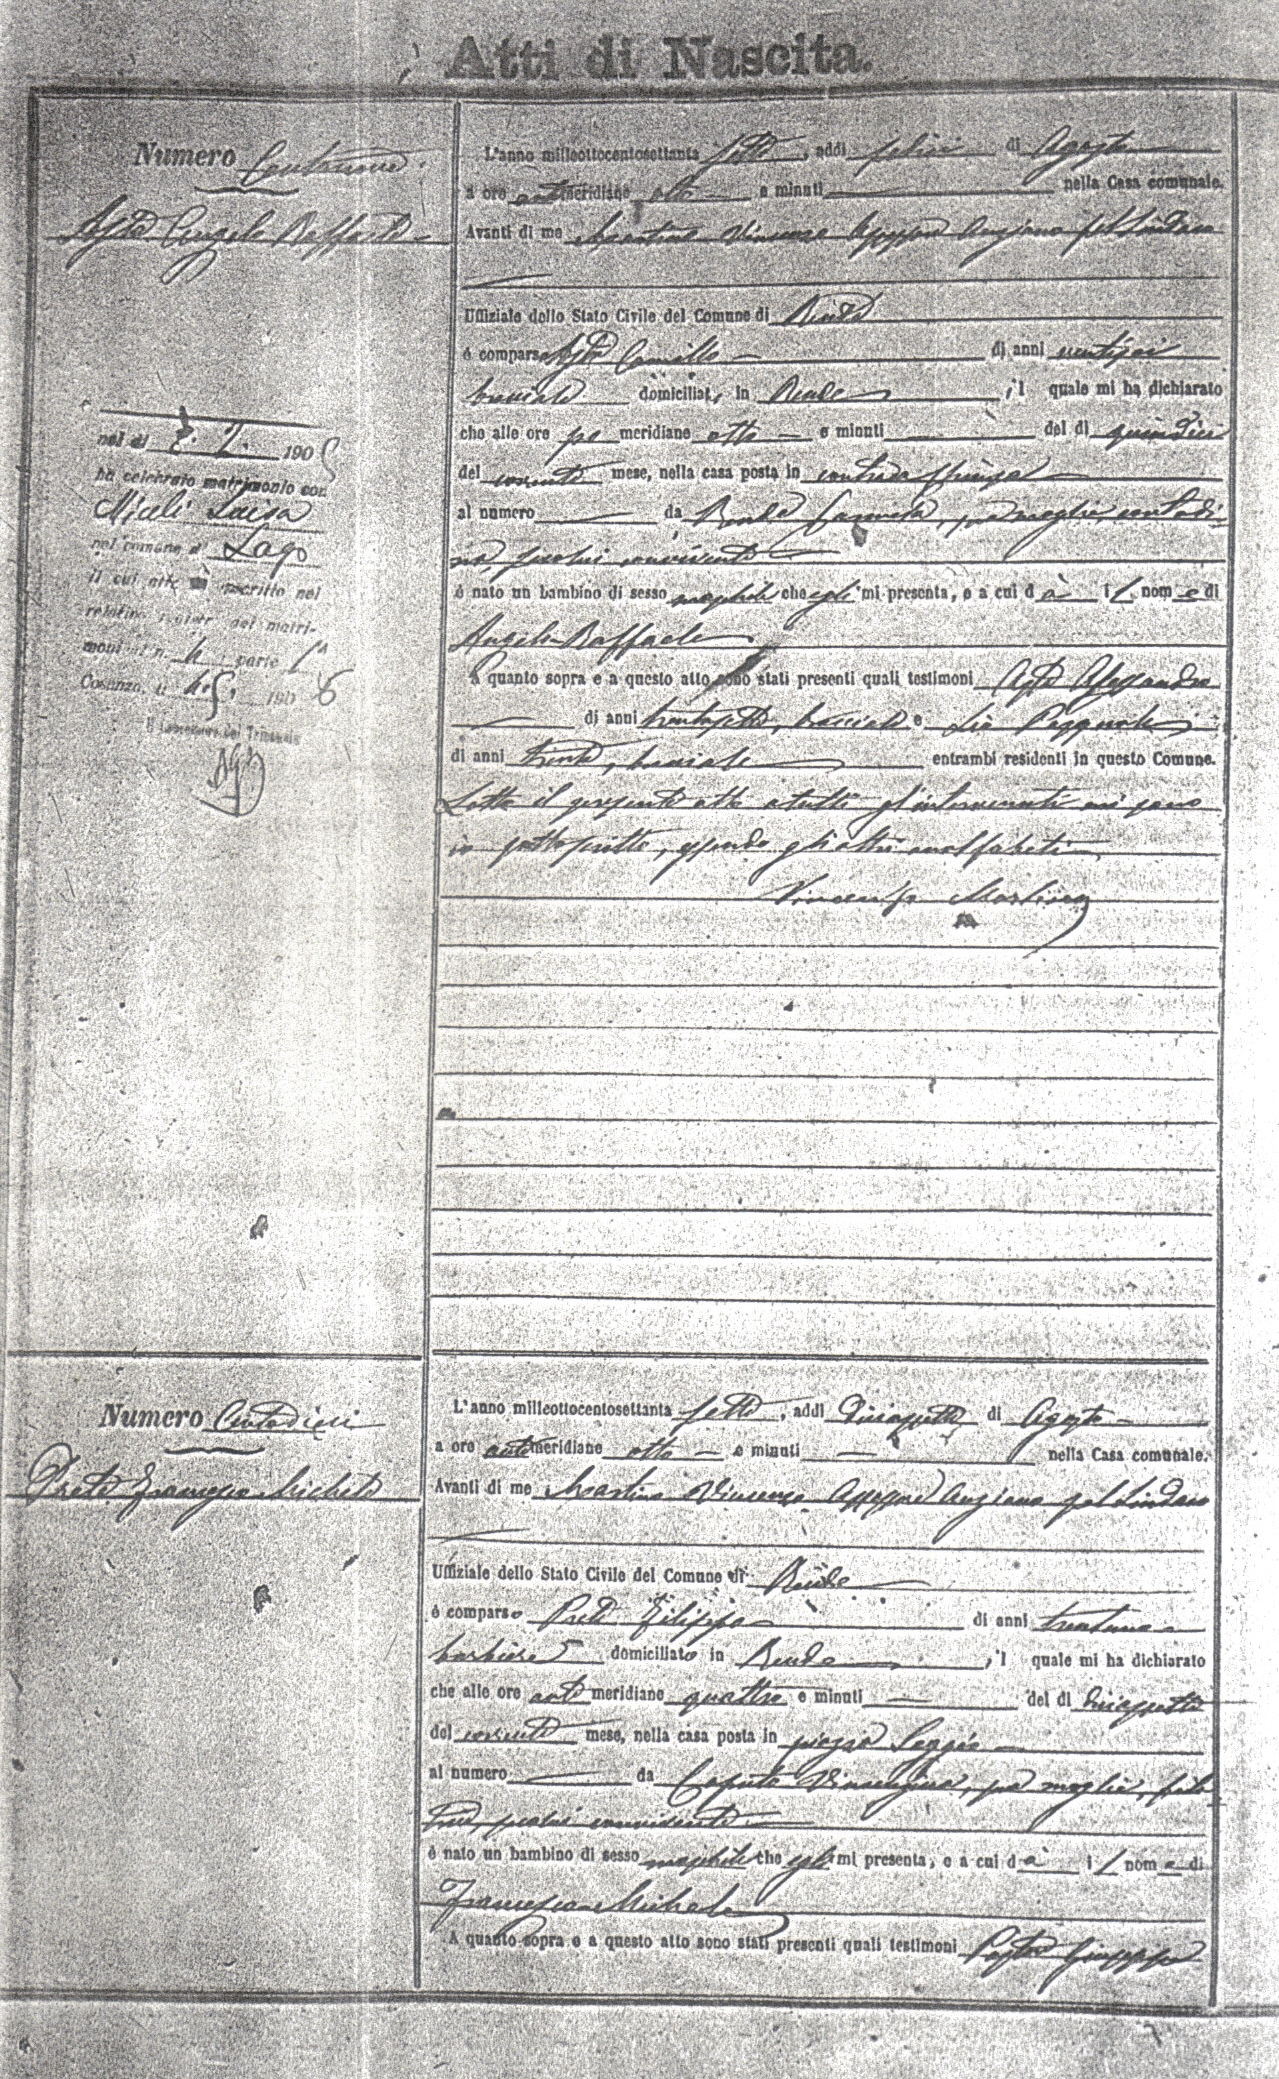 Atti di Nascita.
Numero Centonove
Angelo Raffaele
nel dì 190
ha celebrato matrimonio con
Miceli Luisa
nel comune di Lago
il cui atto è inscritto nel
relativo registro dei matri-
moni al n. 4 parte 1ª
Cosenza, li 190
Il Cancelliere del Tribunale
L'anno milleottocentosettanta sette, addì sedici di Agosto
a ore antimeridiane otto e minuti nella Casa comunale.
Avanti di me Martino Vincenzo Assessore Anziano pel Sindaco
Uffiziale dello Stato Civile del Comune di Rende
è comparso Camillo di anni ventisei
bracciale domiciliato in Rende, il quale mi ha dichiarato
che alle ore pomeridiane otto e minuti del dì quindici
del corrente mese, nella casa posta in contrada
al numero da sua moglie, contadi-
na, secolui convivente
è nato un bambino di sesso maschile che egli mi presenta, e a cui dà il nome di
Angelo Raffaele
A quanto sopra e a questo atto sono stati presenti quali testimoni Alessandro
di anni trentasette, bracciale e Pasquale
di anni trenta, bracciale entrambi residenti in questo Comune.
Letto il presente atto a tutti gl'intervenuti mi sono
io sottoscritto, essendo gli altri analfabeti
Vincenzo Martino
Numero Centodieci
Prete Francesco Michele
L'anno milleottocentosettanta sette, addì diciassette di Agosto
a ore antimeridiane otto e minuti nella Casa comunale.
Avanti di me Martino Vincenzo Assessore Anziano pel Sindaco
Uffiziale dello Stato Civile del Comune di Rende
è comparso Prete Filippo di anni trentuno
barbiere domiciliato in Rende, il quale mi ha dichiarato
che alle ore antimeridiane quattro e minuti del dì diciassette
del corrente mese, nella casa posta in piazza Seggio
al numero da Caputo Vincenzina, sua moglie, fila-
trice, secolui convivente
è nato un bambino di sesso maschile che egli mi presenta, e a cui dà il nome di
Francesco Michele
A quanto sopra e a questo atto sono stati presenti quali testimoni Pastore Giuseppe